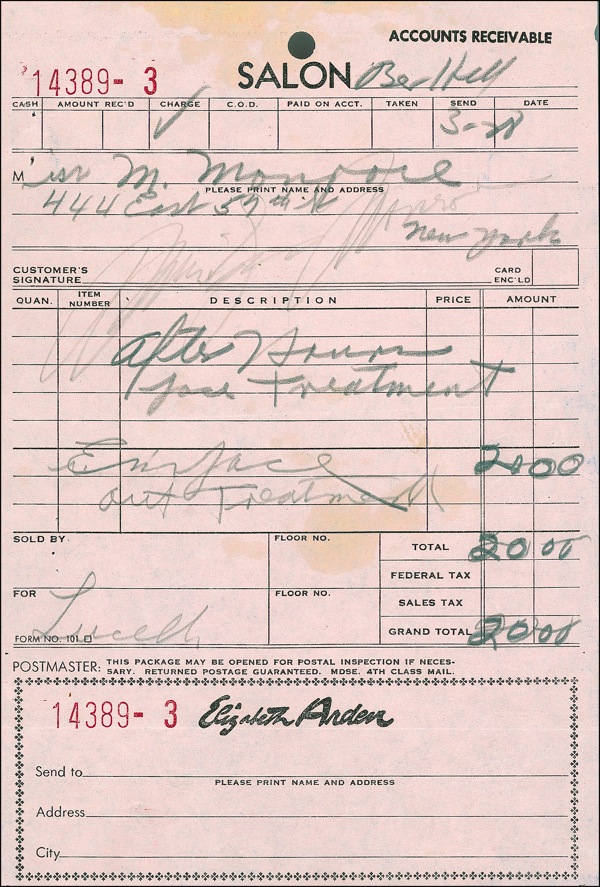 ACCOUNTS RECEIVABLE
14389- 3
SALON Bev Hill
CASH AMOUNT REC'D CHARGE C.O.D. PAID ON ACCT. TAKEN SEND DATE
✓ 3-28
Miss M. Monroe
PLEASE PRINT NAME AND ADDRESS
444 East 57th St
New York
CUSTOMER'S SIGNATURE
CARD ENC'LD
QUAN. ITEM NUMBER DESCRIPTION PRICE AMOUNT
After Hours
face Treatment
face 20 00
out Treatment
SOLD BY FLOOR NO. TOTAL 20 00
FEDERAL TAX
FOR FLOOR NO. SALES TAX
FORM NO. 101 GRAND TOTAL 20 00
POSTMASTER: THIS PACKAGE MAY BE OPENED FOR POSTAL INSPECTION IF NECES-
SARY. RETURNED POSTAGE GUARANTEED. MDSE. 4TH CLASS MAIL.
14389- 3 Elizabeth Arden
Send to
PLEASE PRINT NAME AND ADDRESS
Address
City